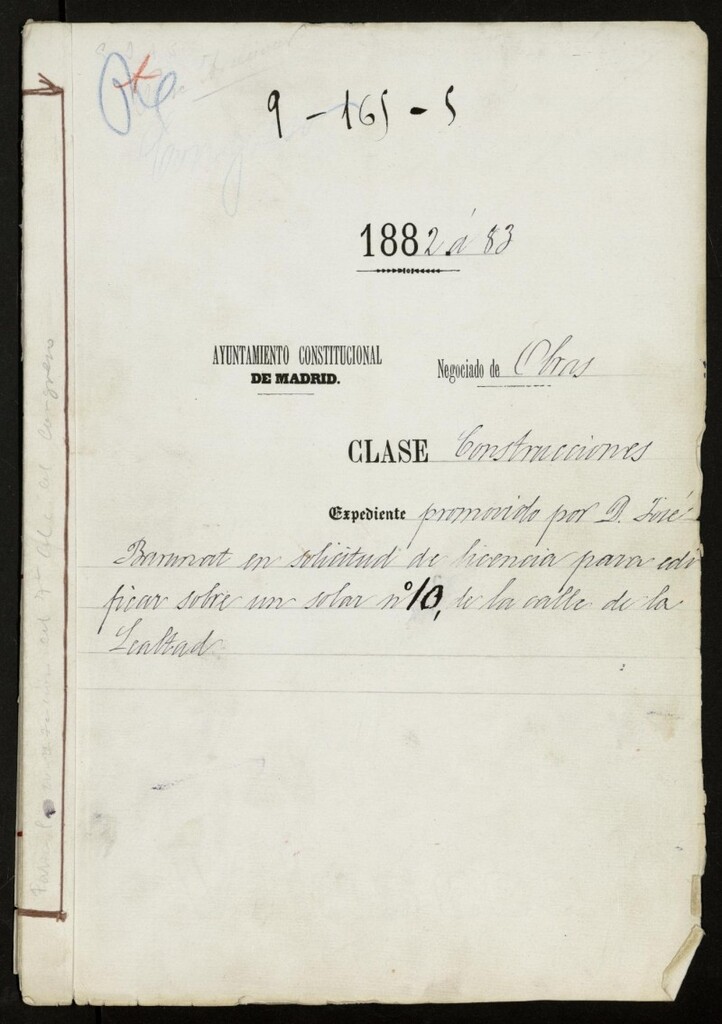 9 - 165 - 5
1882 á 83
AYUNTAMIENTO CONSTITUCIONAL
DE MADRID.
Negociado de Obras
CLASE Construcciones
Expediente promovido por D. José
en solicitud de licencia para edi
ficar sobre un solar nº 10, de la calle de la
Lealtad